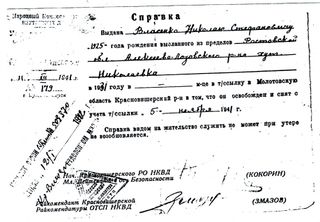 Справка
Народный
Выдана Власенко Николаю Степановичу
1925 - года рождения высланного из пределов Ростовской
обл. р-на хут.
Николаевка
179 1931 году в - м-це в т/ссылку в Молотовскую
область Красновишерский р-н в том, что он освобожден и снят с
учета т/ссылки 5 - ноября 1941 г.
Справка видом на жительство служить не может при утере
не возобновляется.
Нач. Красновишерского РО НКВД
Мл. Безопасности (КОКОРИН)
Райкомендант Красновишерской
Райкомендатуры ОТСП НКВД (ЗМАЗОВ)